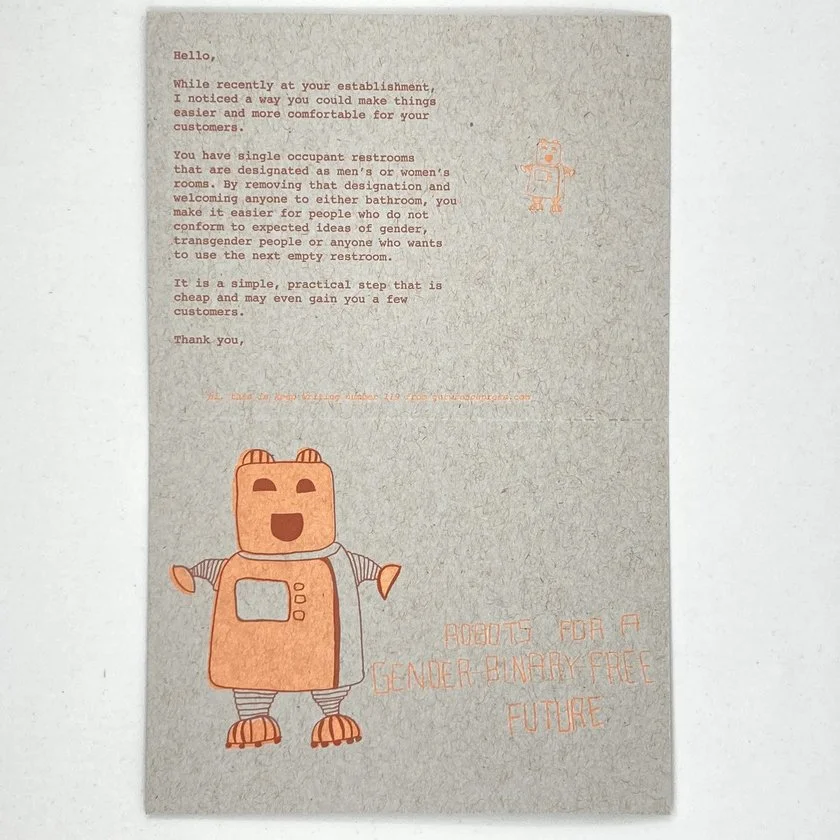 Hello,
While recently at your establishment,
I noticed a way you could make things
easier and more comfortable for your
customers.
You have single occupant restrooms
that are designated as men's or women's
rooms. By removing that designation and
welcoming anyone to either bathroom, you
make it easier for people who do not
conform to expected ideas of gender,
transgender people or anyone who wants
to use the next empty restroom.
It is a simple, practical step that is
cheap and may even gain you a few
customers.
Thank you,
Hi, this is keep writing number 119 from
ROBOTS FOR A
GENDER-BINARY-FREE
FUTURE